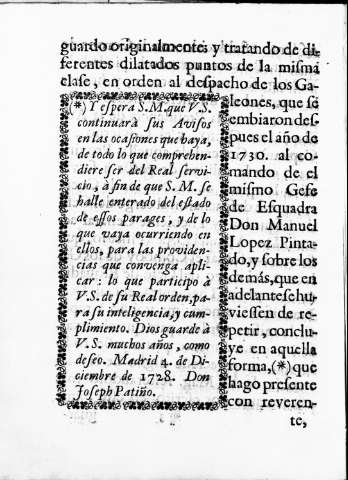 guardo originalmente; y tratando de di-
ferentes dilatados puntos de la misma
clase, en orden al despacho de los Ga-
leones, que se
embiaron des-
pues el año de
1730. al co-
mando de el
mismo Gefe
de Esquadra
Don Manuel
Lopez Pinta-
do, y sobre los
demás, que en
adelante se hu-
viessen de re-
petir, conclu-
ye en aquella
forma, (*) que
hago presente
con reveren-
te,
(*) Y espera S. M. que V. S.
continuarà sus Avisos
en las ocasiones que haya,
de todo lo que comprehen-
diere ser del Real servi-
cio, à fin de que S. M. se
halle enterado del estado
de essos parages, y de lo
que vaya ocurriendo en
ellos, para las providen-
cias que convenga apli-
car: lo que participo à
V. S. de su Real orden, pa-
ra su inteligencia, y cum-
plimiento. Dios guarde à
V. S. muchos años, como
deseo. Madrid 4. de Di-
ciembre de 1728. Don
Joseph Patiño.